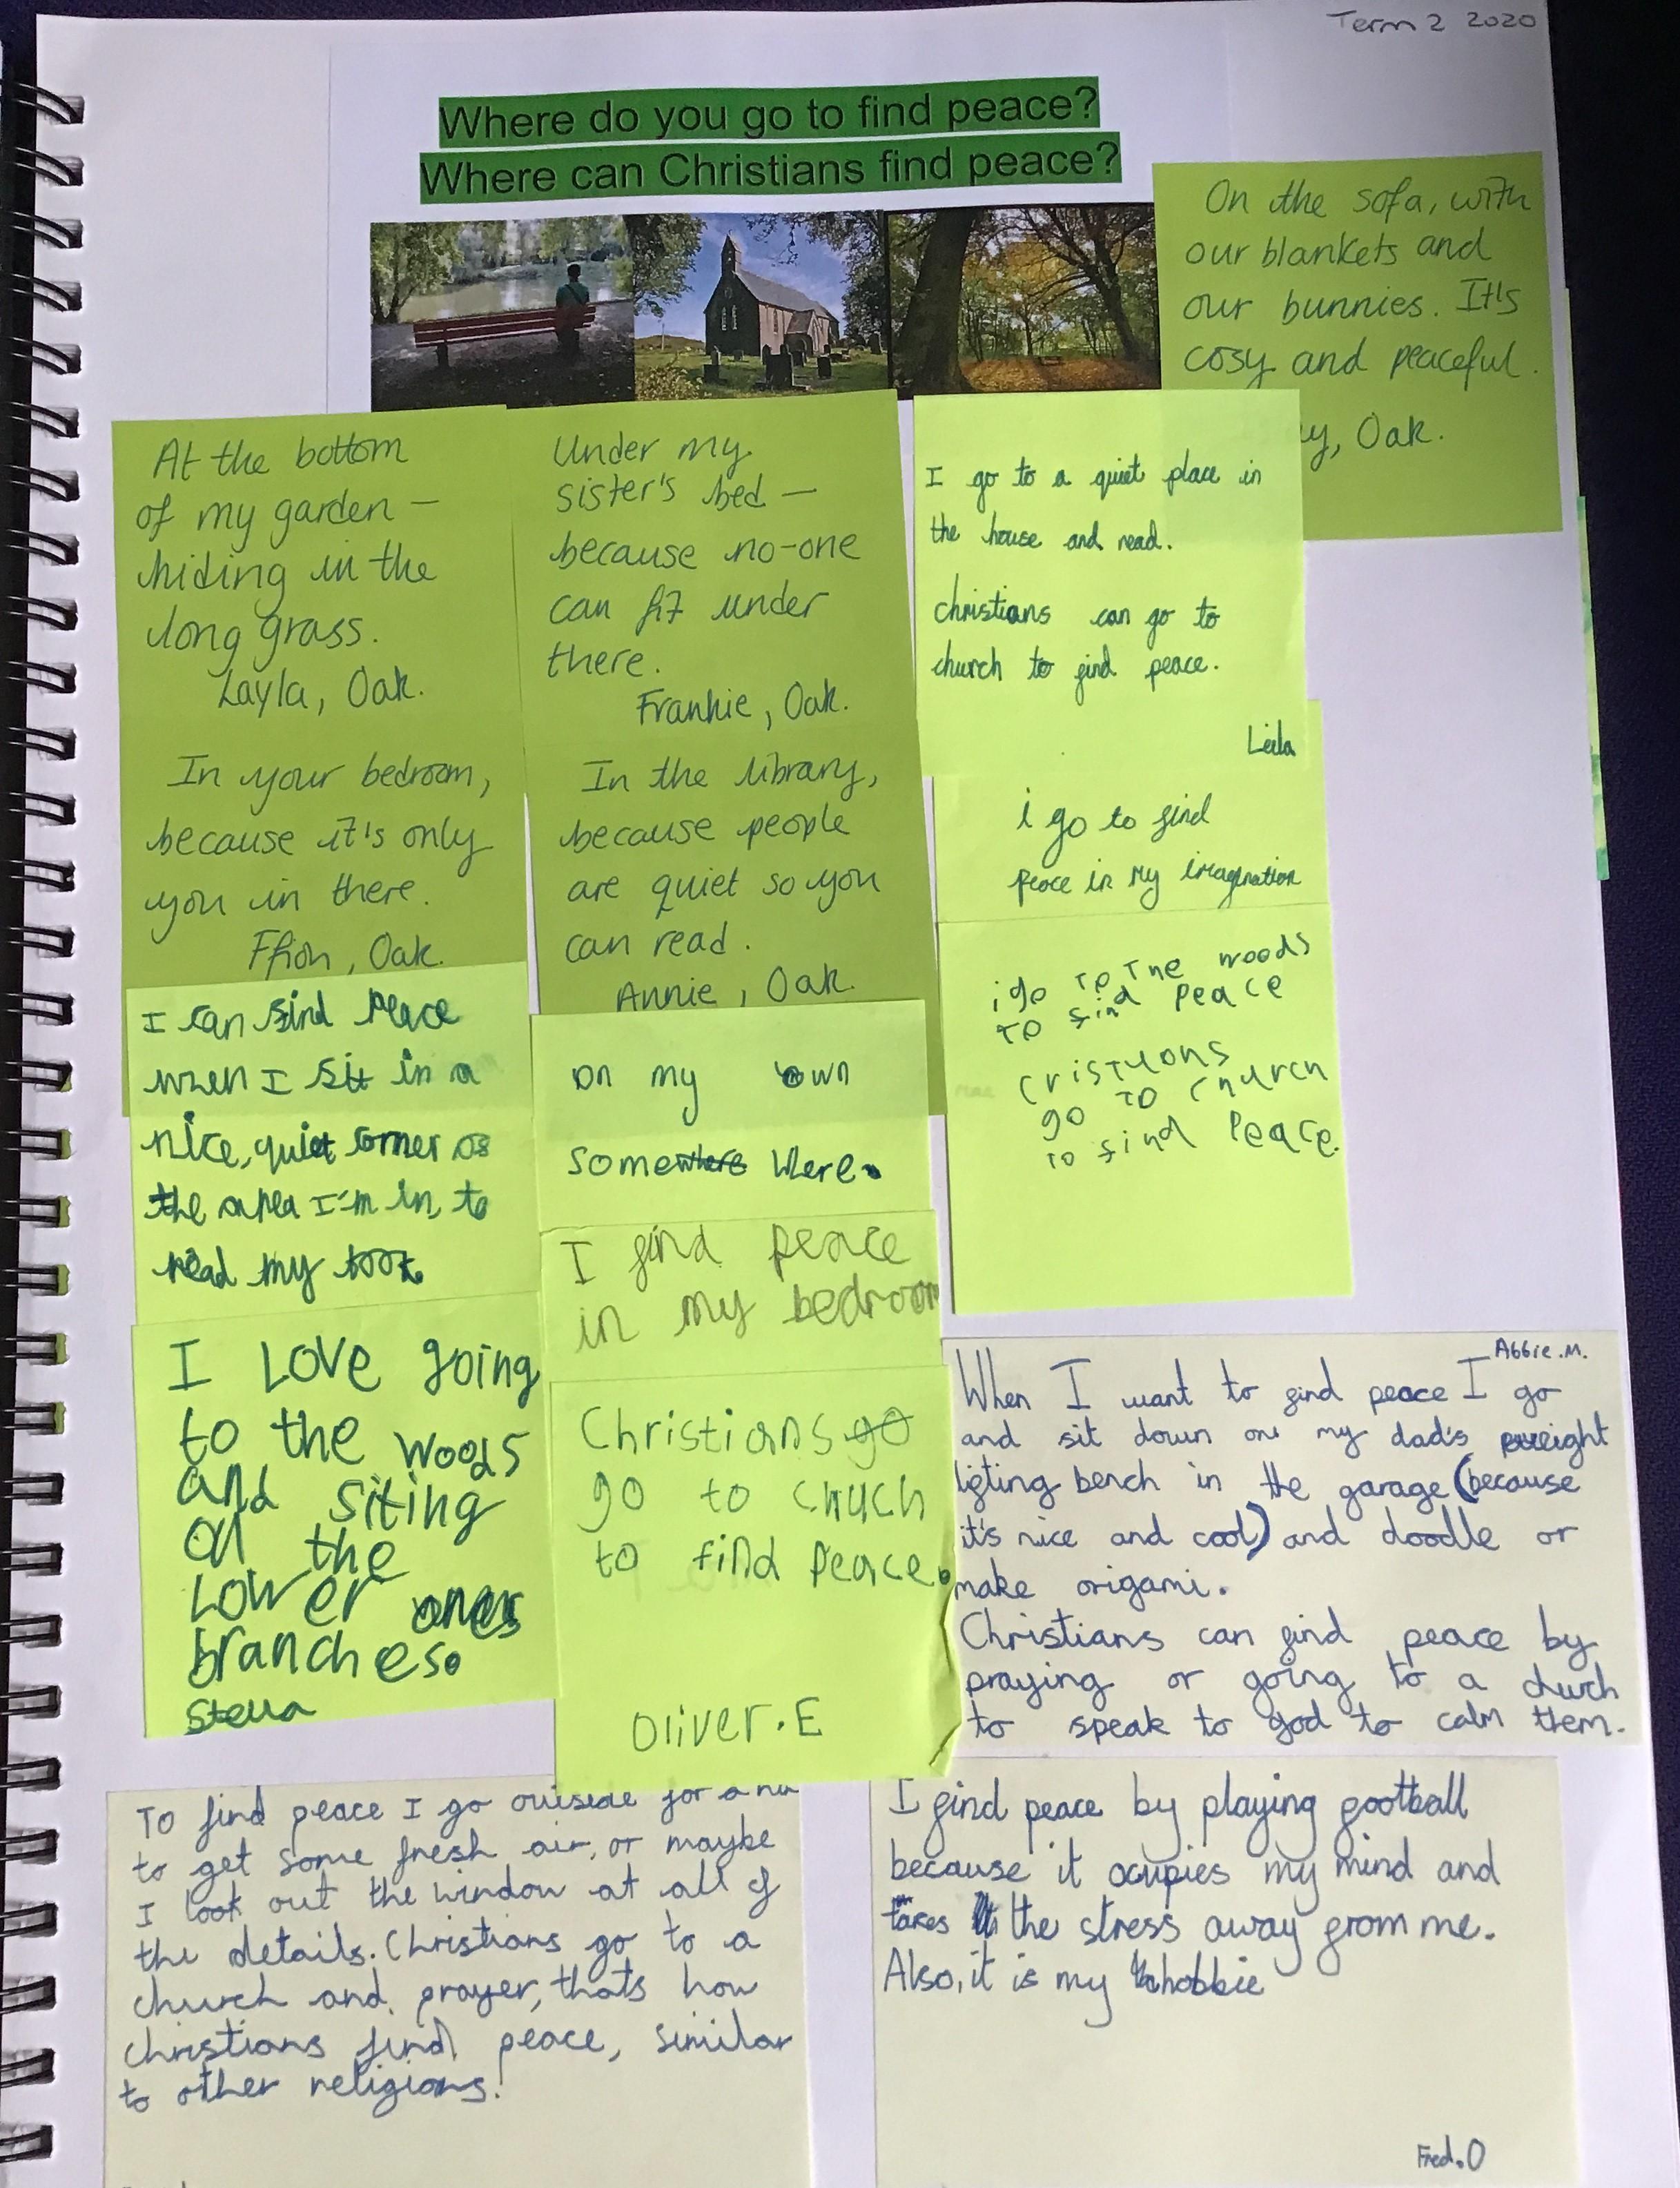 Term 2 2020
Where do you go to find peace?
Where can Christians find peace?
On the sofa, with
our blankets and
our bunnies. It's
cosy and peaceful.
Oak.
At the bottom
of my garden –
hiding in the
long grass.
Layla, Oak.
Under my
sister's bed –
because no-one
can fit under
there.
Frankie, Oak.
I go to a quiet place in
the house and read.
christians can go to
church to find peace.
Leila
In your bedroom,
because it's only
you in there.
Ffion, Oak.
In the library,
because people
are quiet so you
can read.
Annie, Oak.
i go to find
peace in my imagination
I can find peace
when I sit in a
nice, quiet corner os
the area I'm in, to
read my book.
on my own
somewhere where.
i go to the woods
to find peace
cristuons
go to church
to find peace.
I find peace
in my bedroom
I Love going
to the woods
and siting
on the
Lower ones
branches.
Stella
Christians go
go to chuch
to find peace.
Oliver.E
Abbie.M.
When I want to find peace I go
and sit down on my dad's weight
lifting bench in the garage (because
it's nice and cool) and doodle or
make origami.
Christians can find peace by
praying or going to a church
to speak to god to calm them.
To find peace I go outside for a
to get some fresh air, or maybe
I look out the window at all of
the details. Christians go to a
church and prayer, thats how
christians find peace, similar
to other religions.
I find peace by playing football
because it ocupies my mind and
takes the stress away from me.
Also, it is my hobbie
Fred.O